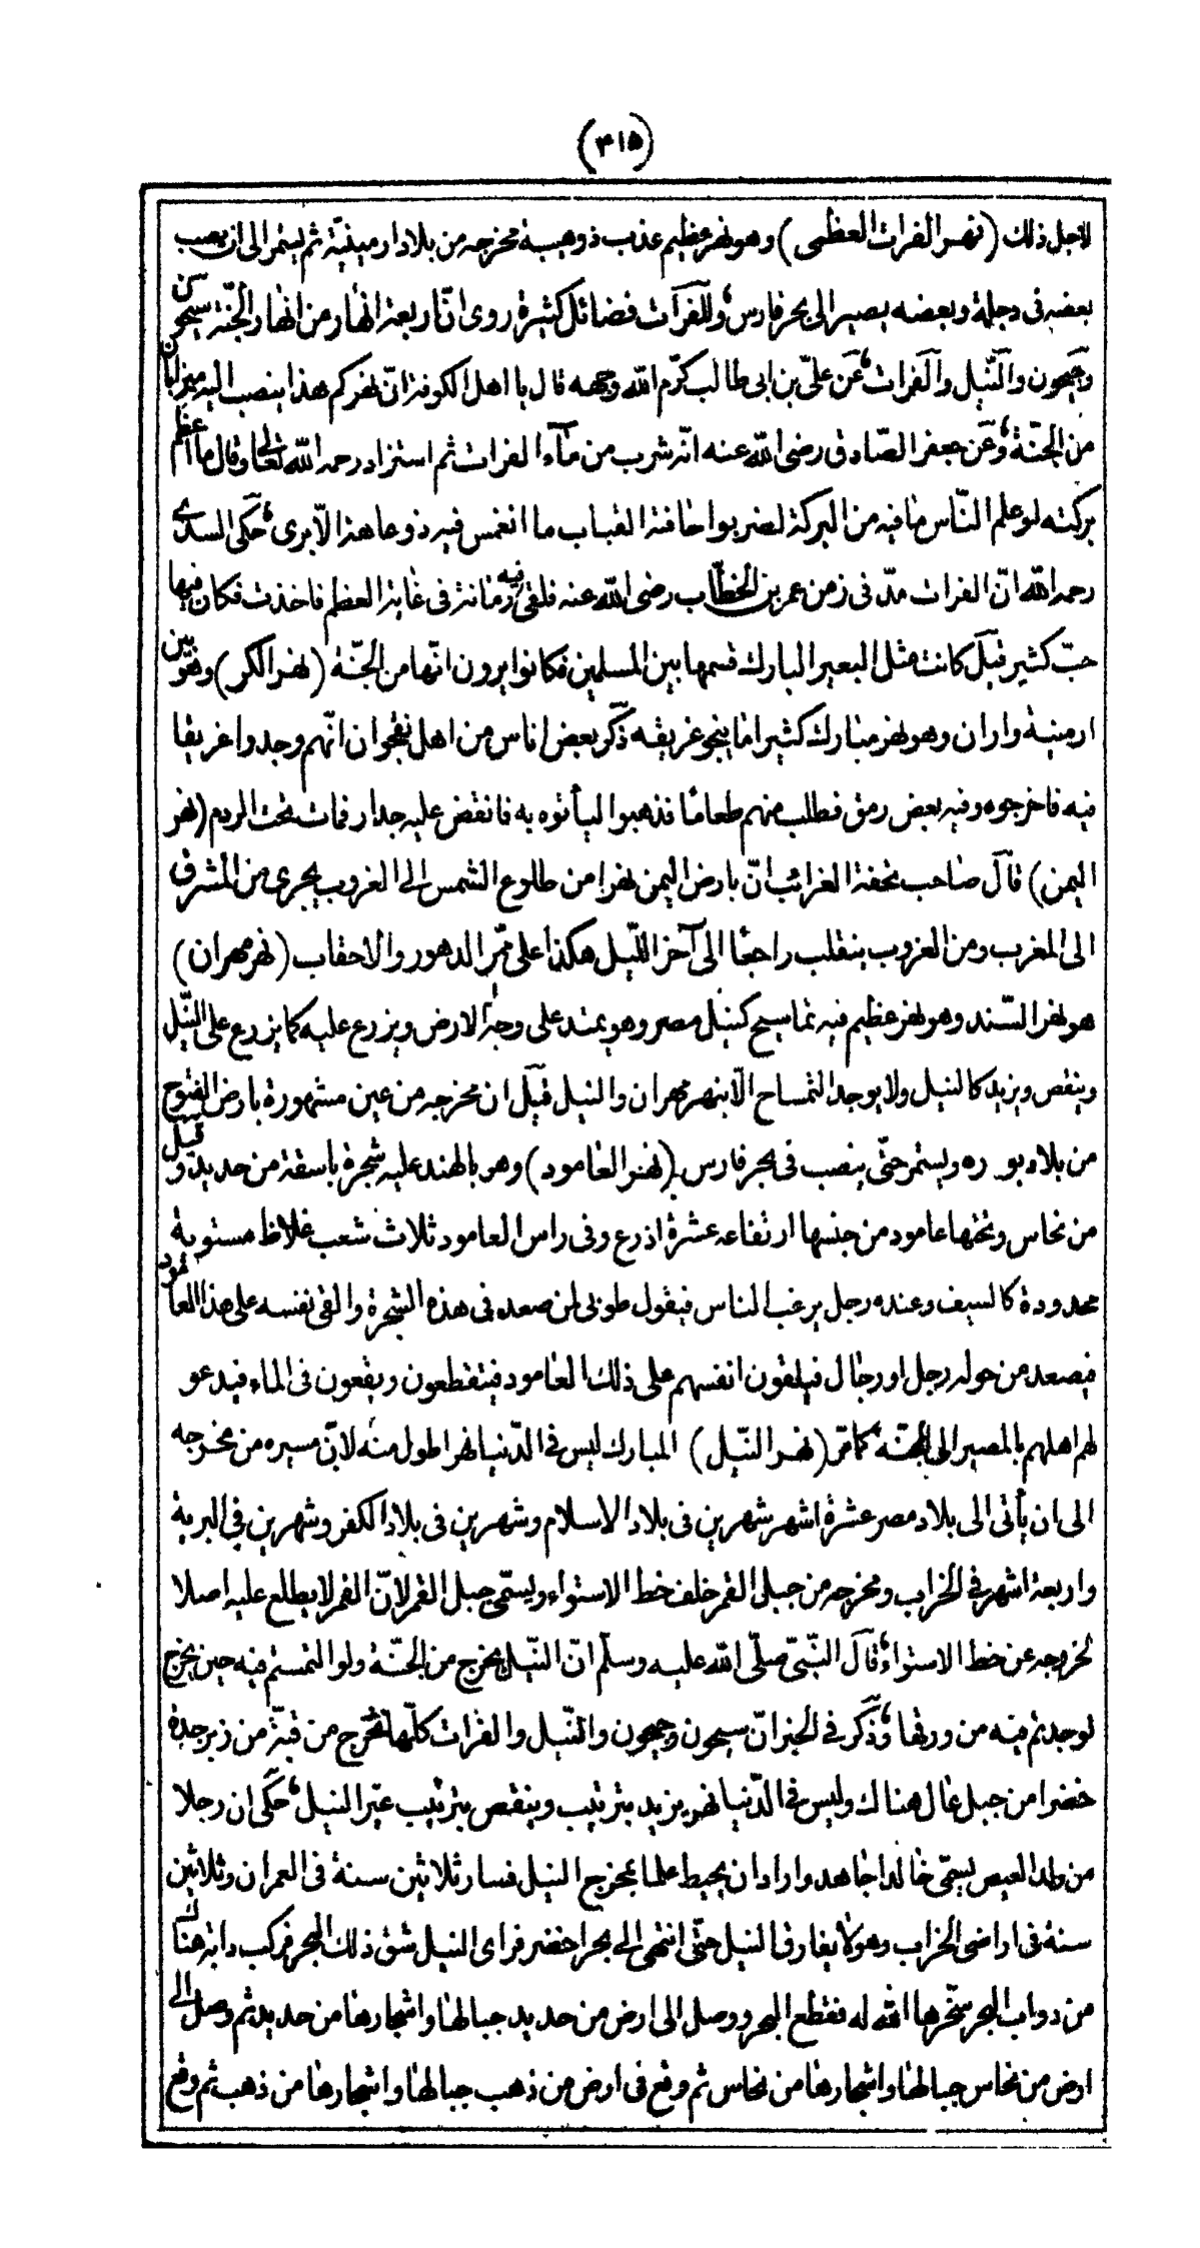 (٤١٥)
لاجل ذلك (نهر الفرات العظمى) وهو نهر عظيم عذب ذو هيبة مخرجه من بلاد ارمينيّة ثم يستمر الى ان يصب
بعضه فى دجلة وبعضه يصير الى بحر فارس وللفرات فضائل كثيرة روى انّ اربعة انهار من انهار الجنّة سيحون
وجيحون والنّيل والفرات عن علىّ بن ابى طالب كرّم الله وجهه قال يا اهل الكوفة انّ نهركم هذا ينصب اليه ميزابان
من الجنّة وعن جعفر الصّادق رضى الله عنه انّه شرب من مآء الفرات ثم استزاد رحمه الله تعالى وقال ما اعظم
بركته لو علم النّاس ما فيه من البركة لضربوا حافته القباب ما انغمس فيه ذو عاهة الّا برى حكى السدى
رحمه الله انّ الفرات مدّ فى زمن عمر بن الخطّاب رضى الله عنه فلقى فيه رمانة فى غاية العظم فاخذت فكان فيها
حبّ كثير قيل كانت مثل البعير البارك قسمها بين المسلمين فكانوا يرون انّها من الجنّة (نهر الكر) وهو بين
ارمنية واران وهو نهر مبارك كثيرا ما ينجو غريقه ذكر بعض اناس من اهل نقجوان انّهم وجدوا غريقا
فيه فاخرجوه وفيه بعض رمق فطلب منهم طعامًا فذهبوا ليأتوه به فانقض عليه جدار فمات تحت الردم (نهر
اليمن) قال صاحب تحفة الغرائب انّ بارض اليمن نهرا من طلوع الشمس الى الغروب يجرى من المشرق
الى المغرب ومن الغروب ينقلب راجعًا الى آخر اللّيل هكذا على ممرّ الدهور والاحقاب (نهر مهران)
هو نهر السّند وهو نهر عظيم فيه تماسيح كنيل مصر وهو يمتد على وجه الارض ويزرع عليه كما يزرع على النّيل
وينقص ويزيد كالنيل ولا يوجد التمساح الّا بنهر مهران والنيل قيل ان مخرجه من عين مشهورة بارض
من بلاد ويستمر حتّى ينصب فى بحر فارس (نهر العامود) وهو بالهند عليه شجرة باسقة من حديد وقيل
من نحاس وتحتها عامود من جنسها ارتفاعه عشرة اذرع وفى راس العامود ثلاث شعب غلاظ مستوية
محدودة كالسيف وعنده رجل يرغب الناس فيقول طوبى لمن صعد فى هذه الشجرة والقى نفسه على هذا العامود
فيصعد من حوله رجل او رجال فيلقون انفسهم على ذلك العامود فيتقطعون ويقعون فى الماء فيدعو
لهم اهلهم بالمصير الى الجنّة كما مرّ (نهر النّيل) المبارك ليس فى الدّنيا نهر اطول منه لانّ مسيره من مخرجه
الى ان يأتى الى بلاد مصر عشرة اشهر شهرين فى بلاد الاسلام وشهرين فى بلاد الكفر وشهرين فى البرية
واربعة اشهر فى الخراب ومخرجه من جبلى القمر خلف خط الاستواء ويسمّى جبل القمر لانّ القمر لا يطلع عليه اصلا
لخروجه عن خط الاستواء قال النّبىّ صلّى الله عليه وسلّم انّ النّيل يخرج من الجنّة ولو التمستم فيه حين يخرج
لوجدتم فيه من ورقها وذكر فى الخبر انّ سيحون وجيحون والنّيل والفرات كلّها تخرج من قبّة من زبرجدة
خضرا من جبل عال هناك وليس فى الدّنيا نهر يزيد بترتيب وينقص بترتيب غير النيل حكى ان رجلا
من ولد العيص يسمّى خالدا جاهد واراد ان يحيط علما بمخرج النيل فسار ثلاثين سنة فى العمران وثلاثين
سنة فى اراضى الخراب وهو لا يفارق النيل حتّى انتهى الى بحر اخضر فراى النيل شق ذلك البحر فركب دابة هناك
من دواب البحر سخّرها الله له فقطع البحر ووصل الى ارض من حديد جبالها واشجارها من حديد ثم وصل الى
ارض من نحاس جبالها واشجارها من نحاس ثم وقع فى ارض من ذهب جبالها واشجارها من ذهب ثم وقع